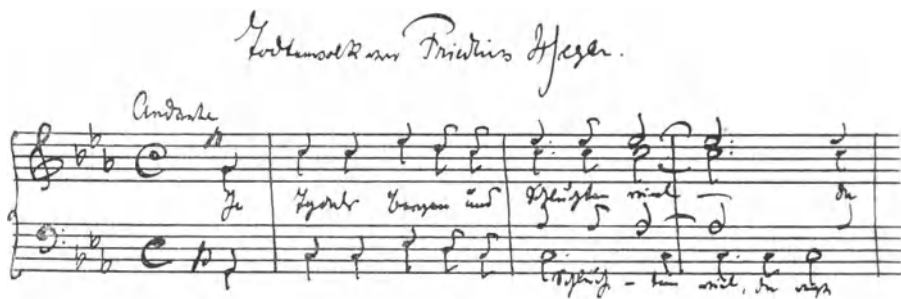 Todtenvolk von Friedrich Hegar.
Andante
p
In Tydals Bergen und Schluchten weit da
p
Schluch - ten weit, da